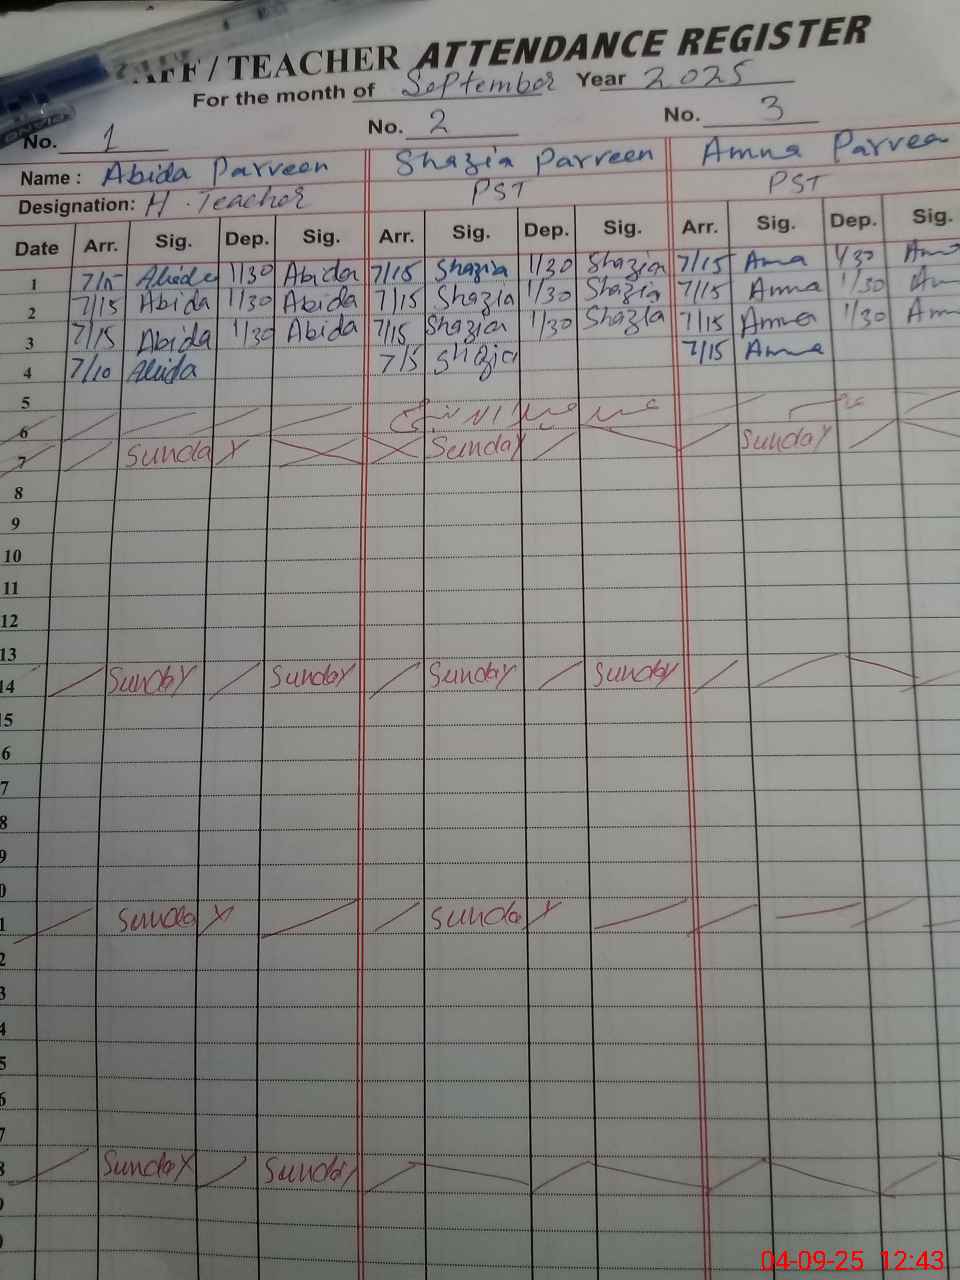 AFF / TEACHER ATTENDANCE REGISTER
For the month of September Year 2025
No. 1 No. 2 No. 3
Name : Abida Parveen Shazia Parveen Amna Parveen
Designation: H. Teacher PST PST
Date Arr. Sig. Dep. Sig. Arr. Sig. Dep. Sig. Arr. Sig. Dep. Sig.
1 7/15 Abida 1/30 Abida 7/15 Shazia 1/30 Shazia 7/15 Amna 1/30 Am
2 7/15 Abida 1/30 Abida 7/15 Shazia 1/30 Shazia 7/15 Amna 1/30 Am
3 7/15 Abida 1/30 Abida 7/15 Shazia 1/30 Shazia 7/15 Amna 1/30 Am
4 7/10 Abida 7/15 Shazia 7/15 Amna
5
6
7 Sunday Sunday Sunday
8
9
10
11
12
13
14 Sunday Sunday Sunday Sunday
5
6
7
8
9
0
1 Sunday Sunday
2
3
4
5
6
7
8 Sunday Sunday
9
0
04-09-25 12:43